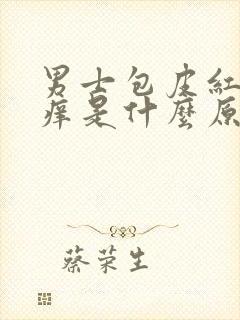 男士包皮紅
痒是什麼原
蔡荣生